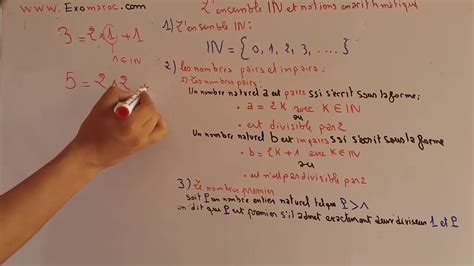 www.Exomaroc.com
L'encemble IN et notions en arithmétique
3 = 2 × 1 + 1
∈ IN
5 = 2 × 2
1) L'ensemble IN :
IN = { 0, 1, 2, 3, .... }
2) les nombres pairs et impairs :
1) Les nombres pairs :
Un nombre naturel a est pairs ssi s'écrit sous la forme :
• a = 2K avec K ∈ IN
ou
• est divisible par 2
Un nombre naturel b est impairs ssi s'écrit sous la forme
• b = 2K + 1 avec K ∈ IN
ou
• est n'est pas divisible par 2
3) Le nombre premier
soit P un nombre entier naturel tel que P > 1
on dit que P est premier s'il admet exactement deux diviseur 1 et P